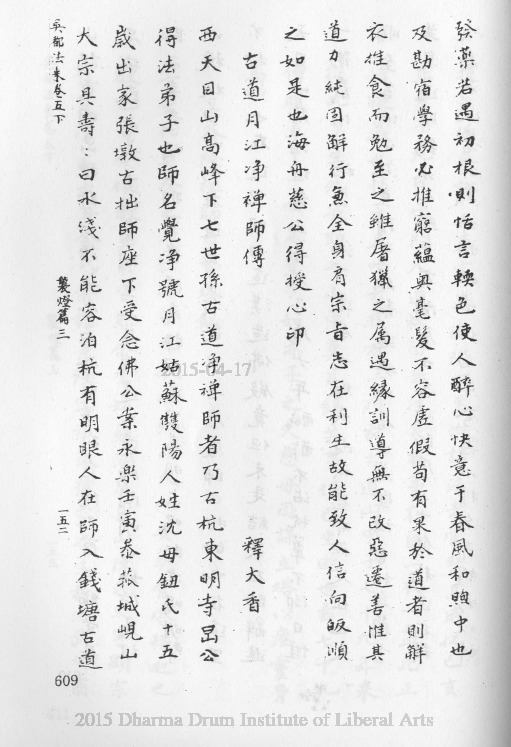 發藥若遇初根則恬言輭色使人醉心快意于春風和煦中也
及勘宿學務必推窮蘊奧毫髮不容虛假苟有果於道者則解
衣推食而勉至之雖屠獵之属遇緣訓導無不改惡遷善惟其
道力純固解行兼全身肩宗旨志在利生故能致人信向皈順
之如是也海舟慈公得授心印
古道月江净禅師傳
釋大香
西天目山高峰下七世孫古道净禅師者乃古杭東明寺旵公
得法弟子也師名覺净號月江姑蘇雙陽人姓沈母鈕氏十五
歲出家張墩古拙師座下受念佛公案永樂壬寅叅菰城峴山
大宗具壽:曰水淺不能容泊杭有明眼人在師入錢塘古道
吳都法乘卷五下
繫燈篇三
一五二
609
2015-04-17
2015 Dharma Drum Institute of Liberal Arts